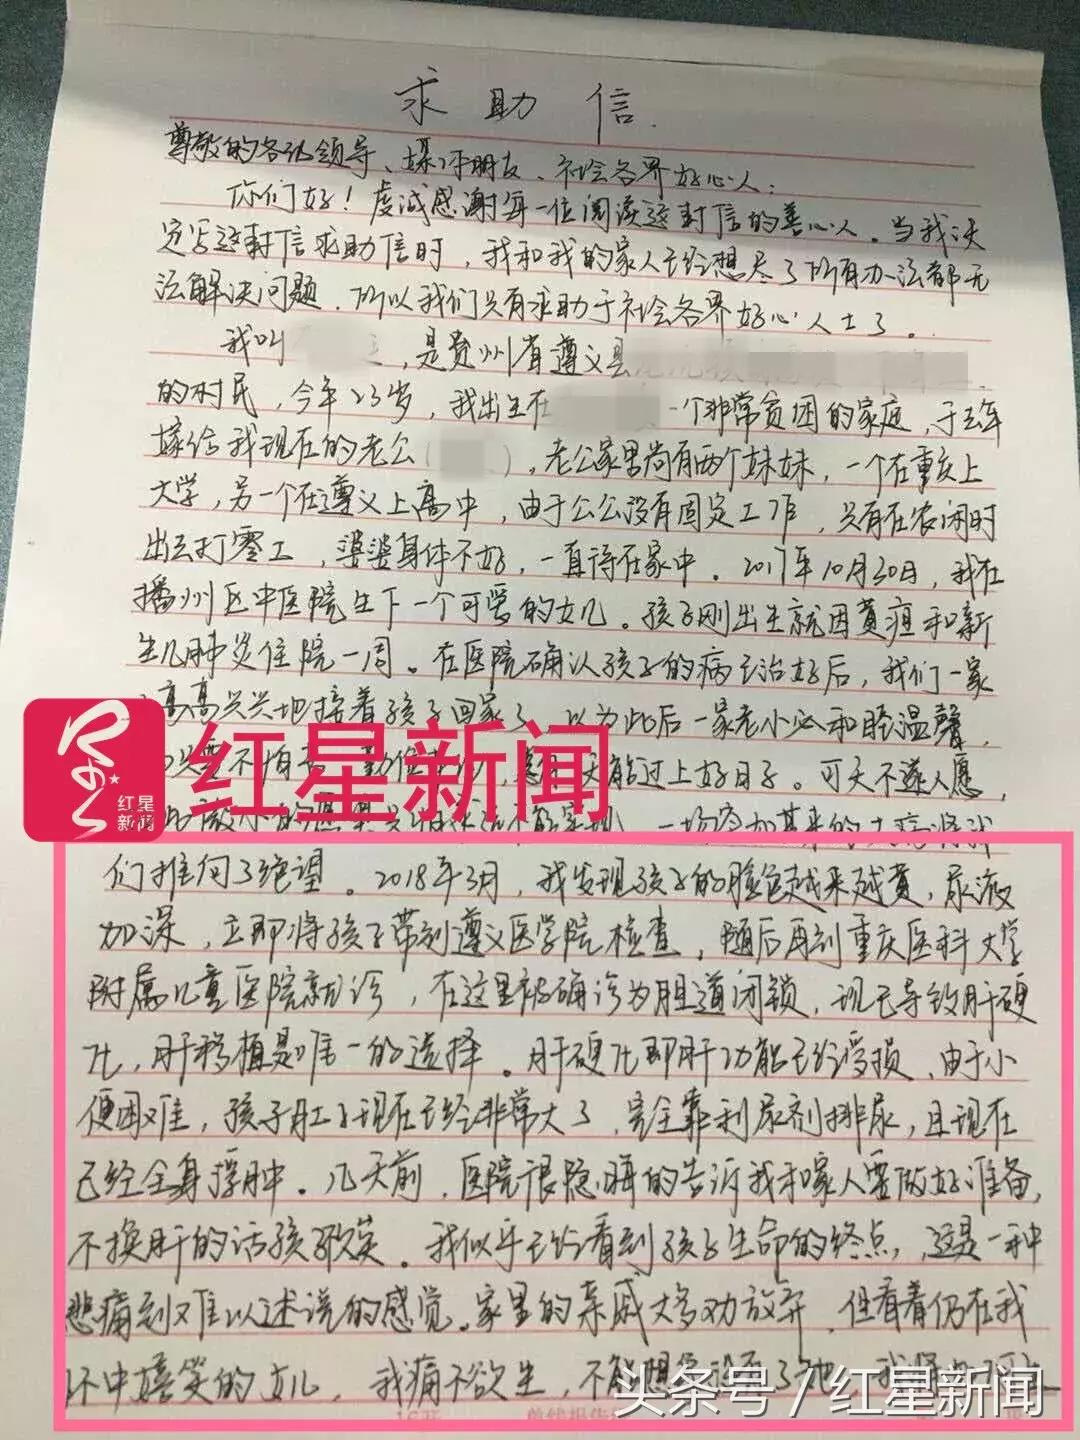 求助信
尊敬的各位领导、媒体朋友、社会各界好心人：
你们好！虔诚感谢每一位阅读这封信的善心人。当我决
定写这封信求助信时，我和我的家人已经想尽了所有办法都无
法解决问题，所以我们只有求助于社会各界好心人士了。
我叫，是贵州省遵义县
的村民，今年23岁，我出生在一个非常贫困的家庭，于去年
嫁给我现在的老公（），老公家里尚有两个妹妹，一个在重庆上
大学，另一个在遵义上高中，由于公公没有固定工作，只有在农闲时
出去打零工，婆婆身体不好，一直待在家中。2017年10月30日，我在
播州区中医院生下一个可爱的女儿。孩子刚出生就因黄疸和新
生儿肺炎住院一周。在医院确认孩子的病已治好后，我们一家
高高兴兴地接着孩子回家了，以为此后一家老小必和睦温馨，
不怕天能过上好日子。可天不遂人愿，
红星新闻
红星新闻
们推向了绝望。2018年3月，我发现孩子的脸色越来越黄，尿液
加深，立即将孩子带到遵义医学院检查，随后再到重庆医科大学
附属儿童医院就诊，在这里被确诊为胆道闭锁，现已导致肝硬
化，肝移植是唯一的选择。肝硬化即肝功能已经受损，由于小
便困难，孩子肚子现在已经非常大了，完全靠利尿剂排尿，且现在
已经全身浮肿。几天前，医院很隐晦的告诉我和家人要做好准备，
不换肝的话孩子。我似乎已经看到孩子生命的终点，这是一种
悲痛到难以述说的感觉。家里的亲戚大多劝放弃，但看着仍在我
怀中嬉笑的女儿，我痛不欲生，不能想象没有了她，我
头条号／红星新闻